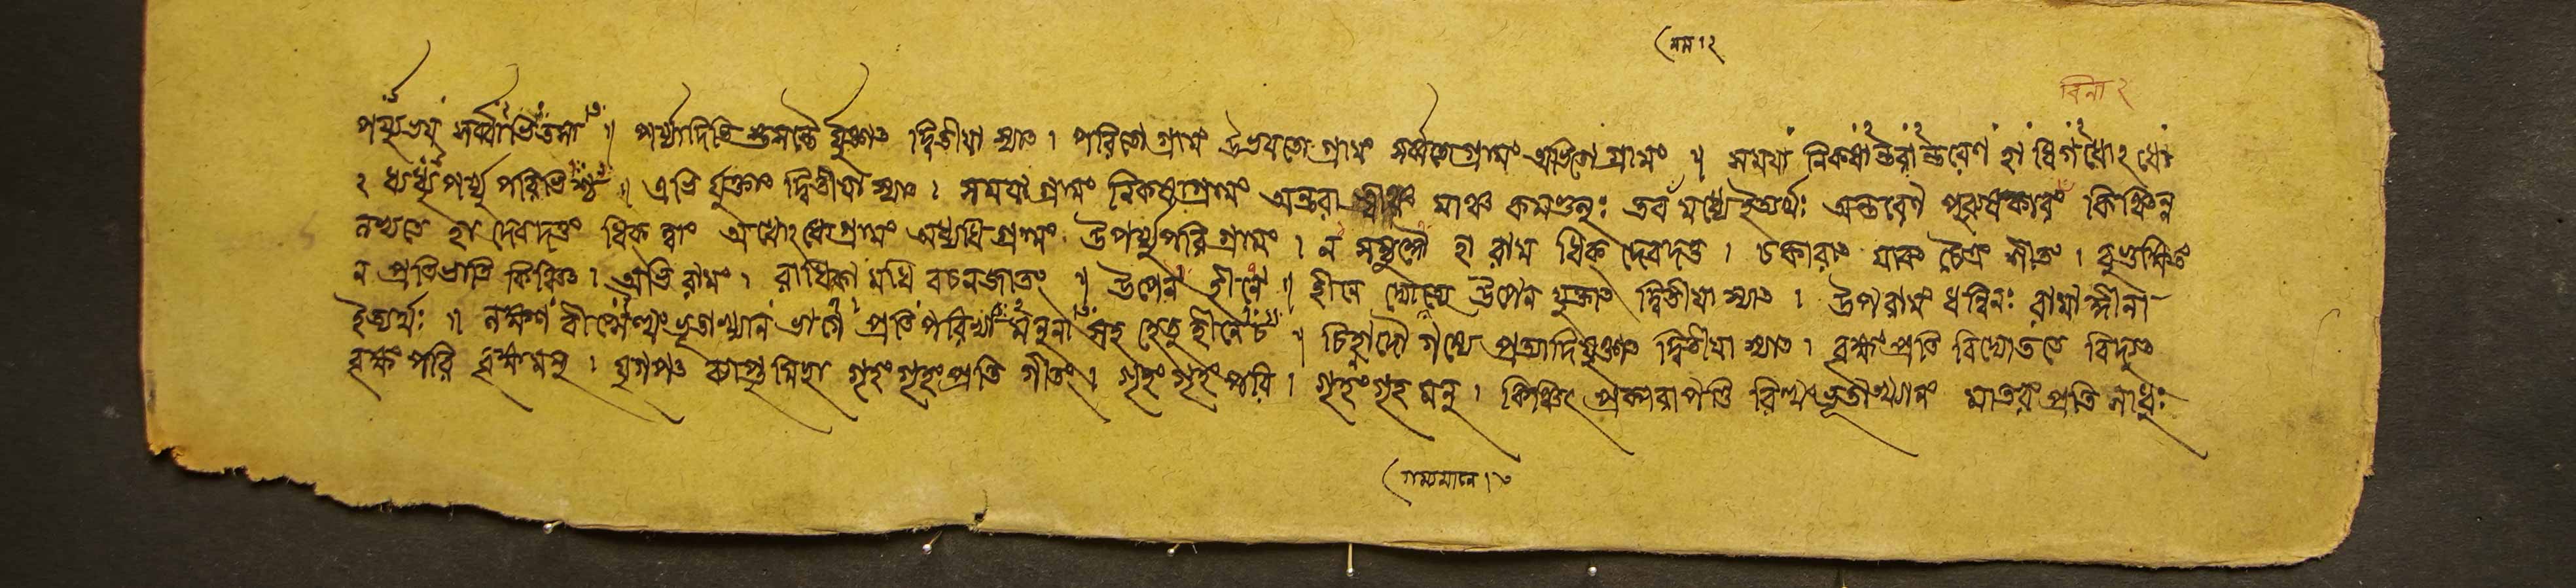 বিনা ২
পর্য্যুভয় সর্ব্বাভিতসা ॥ পর্য্যাদিভি স্তসান্তৈ র্যুক্তাৎ দ্বিতীয়া স্যাৎ । পরিতো গ্রামং উভয়তো গ্রামং সর্ব্বতো গ্রামং অভিতো গ্রামং ॥ সময়া নিকষান্তরান্তরেণ হা ধিগধোঽধো
ঽধ্যধ্যুপর্য্যুপরিভিশ্চ ॥ এভি র্যুক্তাৎ দ্বিতীয়া স্যাৎ । সময়া গ্রামং নিকষা গ্রামং অন্তরা ত্বাঞ্চ মাঞ্চ কমণ্ডলুঃ তব মধ্যে ইত্যর্থঃ অন্তরেণ পুরুষকারং কিঞ্চিন্ন
লভ্যতে হা দেবদত্তং ধিক্ ত্বাং অধোঽধো গ্রামং অধ্যধি গ্রামং উপর্য্যুপরি গ্রামং । ন সম্বুদ্ধৌ হা রাম ধিক্ দেবদত্ত । চকারাৎ যাবৎ চৈত্রং শীতং । বুভুক্ষিতং
ন প্রতিভাতি কিঞ্চিৎ । অভি রামং । রাধিকা মধি বচনজাতং ॥ উপেন হীনে ॥ হীনে দ্যোত্যে উপেন যুক্তাৎ দ্বিতীয়া স্যাৎ । উপরামং ধন্বিনঃ রামাদ্ধীনা
ইত্যর্থঃ ॥ লক্ষণ বীপ্সেত্থং ভূতাখ্যান ভাগে প্রতি পরিণা মনুনা সহ হেতু হীনে চ ॥ চিহ্নাদৌ গম্যে প্রত্যাদিযুক্তাৎ দ্বিতীয়া স্যাৎ । বৃক্ষং প্রতি বিদ্যোততে বিদ্যুৎ
বৃক্ষং পরি বৃক্ষমনু । গৃহং গৃহং প্রতি গীতং । গৃহং গৃহং পরি । গৃহং গৃহ মনু । কিঞ্চিৎ প্রকারাপত্তি রিত্থং ভূতাখ্যানং মাতরং প্রতি সাধুঃ
গম্যমানে । ৩